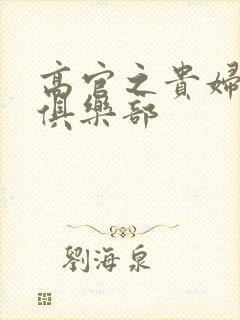 高官之貴婦
俱樂部
劉海泉